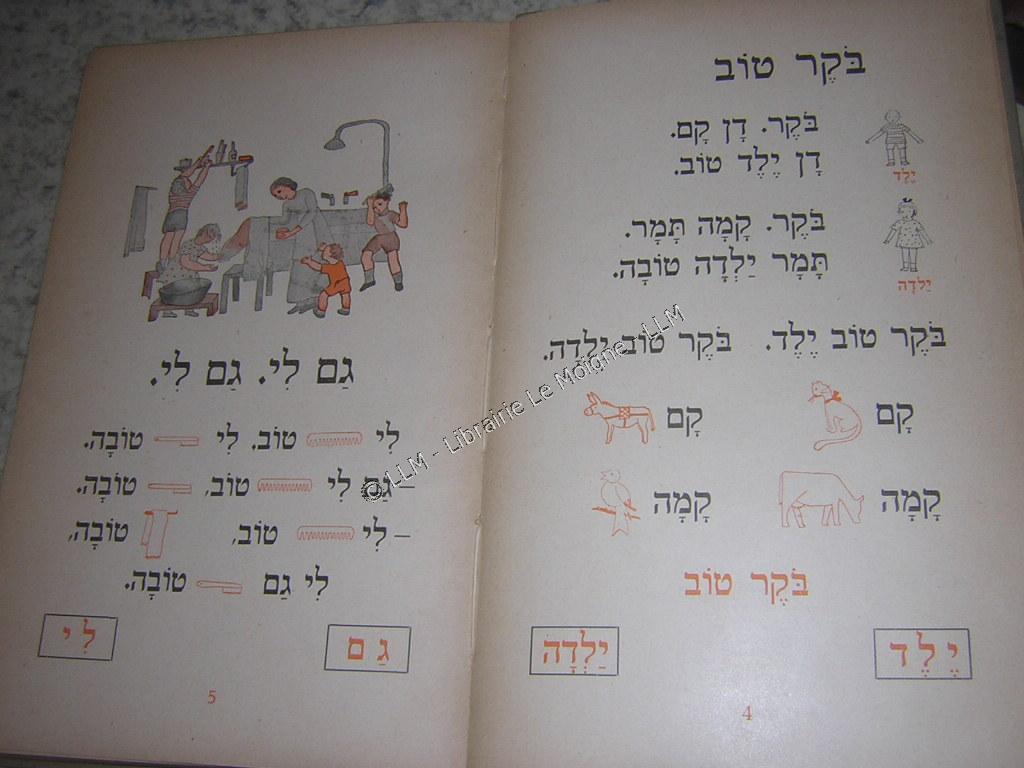 בֹּקֶר טוֹב
בֹּקֶר. דָן קָם.
דָן יֶלֶד טוֹב.
יֶלֶד
בֹּקֶר. קָמָה תָּמָר.
תָּמָר יַלְדָה טוֹבָה.
יַלְדָה
בֹּקֶר טוֹב יֶלֶד. בֹּקֶר טוֹב יַלְדָה.
קָם קָם
קָמָה קָמָה
בֹּקֶר טוֹב
יֶלֶד יַלְדָה
4
גַם לִי. גַם לִי.
לִי טוֹב. לִי טוֹבָה.
– גַם לִי טוֹב, טוֹבָה.
– לִי טוֹב, טוֹבָה,
לִי גַם טוֹבָה.
גַם לִי
5
© LLM - Librairie Le Moigne - LLM